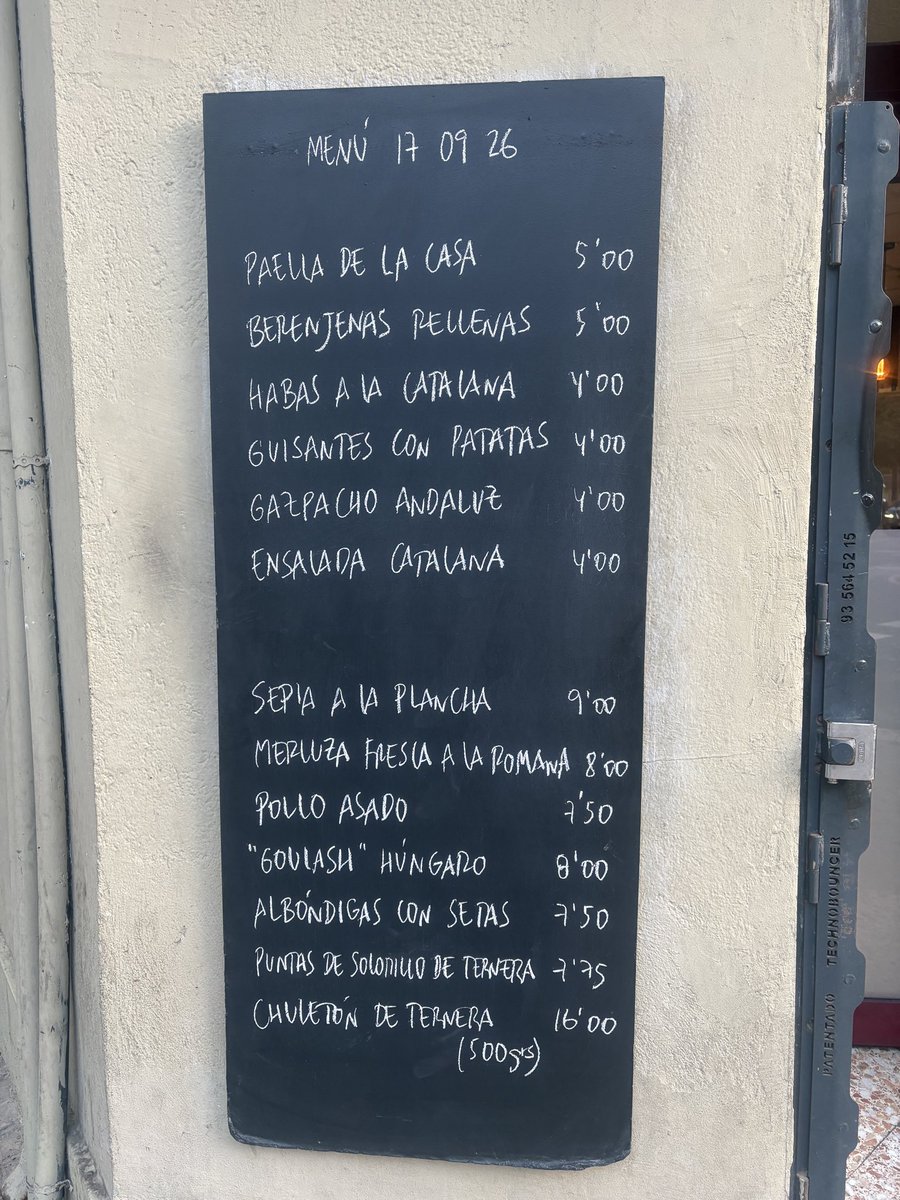 MENÚ 17 09 26
PAELLA DE LA CASA 5'00
BERENJENAS RELLENAS 5'00
HABAS A LA CATALANA 4'00
GUISANTES CON PATATAS 4'00
GAZPACHO ANDALUZ 4'00
ENSALADA CATALANA 4'00
SEPIA A LA PLANCHA 9'00
MERLUZA FRESCA A LA ROMANA 8'00
POLLO ASADO 7'50
"GOULASH" HÚNGARO 8'00
ALBÓNDIGAS CON SETAS 7'50
PUNTAS DE SOLOMILLO DE TERNERA 7'75
CHULETÓN DE TERNERA 16'00
(500grs)
93 564 52 15
PATENTADO TECHNOBOUNCER